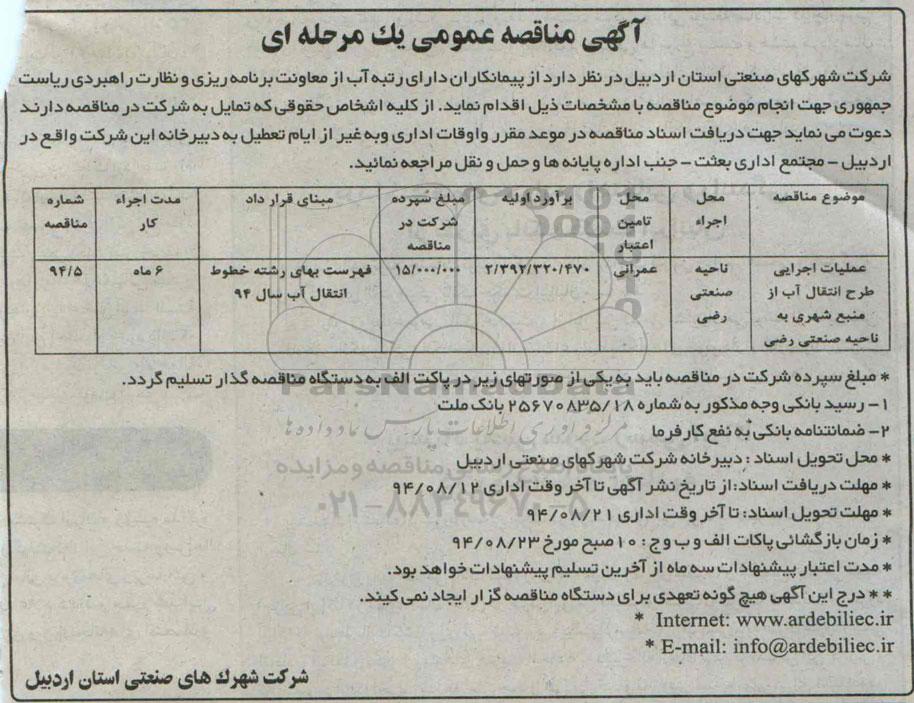 آگهی مناقصه عمومی یك مرحله ای
شرکت شهرکهای صنعتی استان اردبیل در نظر دارد از پیمانکاران دارای رتبه آب از معاونت برنامه ریزی و نظارت راهبردی ریاست
جمهوری جهت انجام موضوع مناقصه با مشخصات ذیل اقدام نماید. از کلیه اشخاص حقوقی که تمایل به شرکت در مناقصه دارند
دعوت می نماید جهت دریافت اسناد مناقصه در موعد مقرر و اوقات اداری و به غیر از ایام تعطیل به دبیرخانه این شرکت واقع در
اردبیل – مجتمع اداری بعثت – جنب اداره پایانه ها و حمل و نقل مراجعه نمائید.
موضوع مناقصه | محل اجراء | محل تامین اعتبار | برآورد اولیه | مبلغ سپرده شرکت در مناقصه | مبنای قرار داد | مدت اجراء کار | شماره مناقصه
عملیات اجرایی طرح انتقال آب از منبع شهری به ناحیه صنعتی رضی | ناحیه صنعتی رضی | عمرانی | ۲/۳۹۲/۳۲۰/۴۷۰ | ۱۵/۰۰۰/۰۰۰ | فهرست بهای رشته خطوط انتقال آب سال ۹۴ | ۶ ماه | ۹۴/۵
* مبلغ سپرده شرکت در مناقصه باید به یکی از صورتهای زیر در پاکت الف به دستگاه مناقصه گذار تسلیم گردد.
۱– رسید بانکی وجه مذکور به شماره ۲۵۶۷۰۸۳۵/۱۸ بانک ملت
۲– ضمانتنامه بانکی به نفع کارفرما
* محل تحویل اسناد : دبیرخانه شرکت شهرکهای صنعتی اردبیل
* مهلت دریافت اسناد: از تاریخ نشر آگهی تا آخر وقت اداری ۹۴/۰۸/۱۲
* مهلت تحویل اسناد: تا آخر وقت اداری ۹۴/۰۸/۲۱
* زمان بازگشائی پاکات الف و ب و ج : ۱۰ صبح مورخ ۹۴/۰۸/۲۳
* مدت اعتبار پیشنهادات سه ماه از آخرین تسلیم پیشنهادات خواهد بود.
* * درج این آگهی هیچ گونه تعهدی برای دستگاه مناقصه گزار ایجاد نمی کیند.
* Internet: www.ardebiliec.ir
* E-mail: info@ardebiliec.ir
شرکت شهرك های صنعتی استان اردبیل
ParsNamadData
مرکز فرآوری اطلاعات پارس نماد داده ها
۰۲۱-۸۸۳۴۹۶۷۰-۵